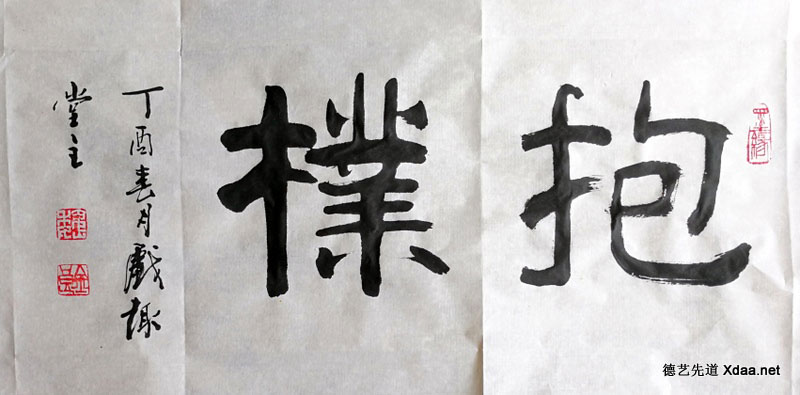 抱樸
丁酉春月戲趣
堂主
德艺先道 Xdaa.net